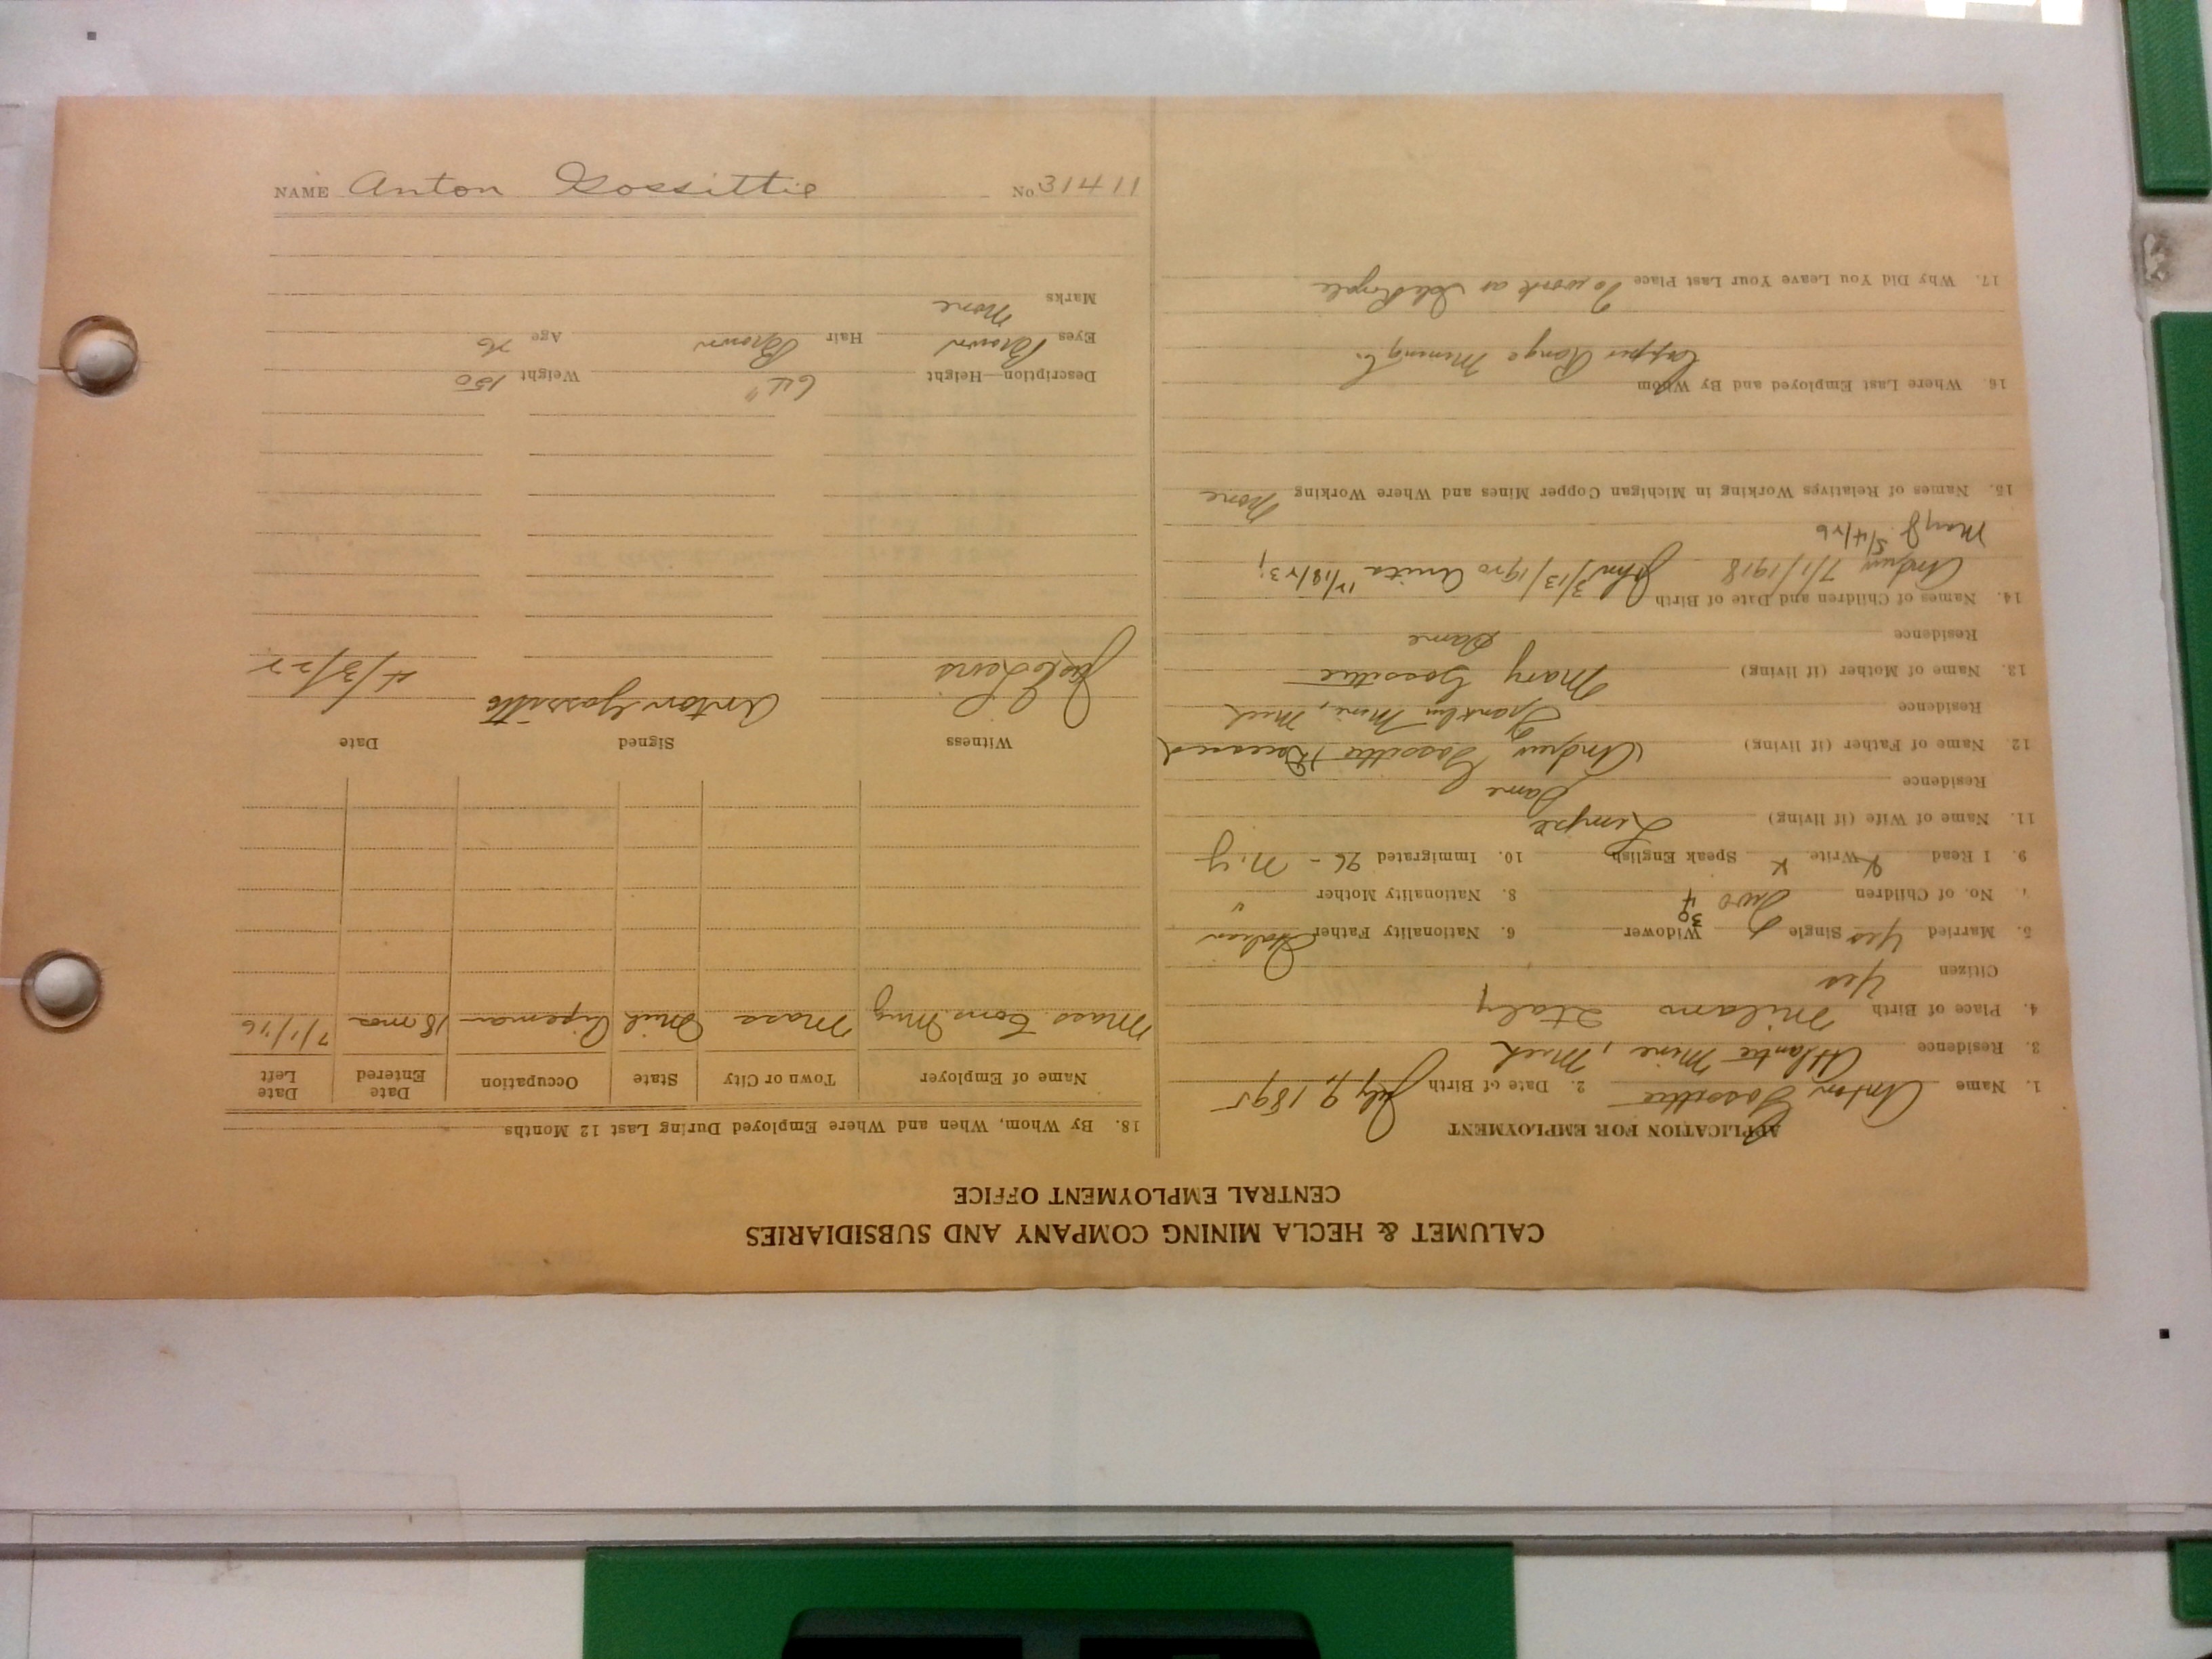 NAME Anton Gossittie No. 31411
CALUMET & HECLA MINING COMPANY AND SUBSIDIARIES
CENTRAL EMPLOYMENT OFFICE
APPLICATION FOR EMPLOYMENT
1. Name Anton Gossittie 2. Date of Birth July 9, 1895
3. Residence Atlantic Mine, Mich
4. Place of Birth Milano Italy
Citizen Yes
5. Married Yes Single Widower 30 6. Nationality Father Italian
7. No. of Children Two 4 8. Nationality Mother "
9. I Read X Write X Speak English 10. Immigrated 96 - N.Y
11. Name of Wife (if living) Lempi
Residence Same
12. Name of Father (if living) Andrew Gossittie Deceased
Residence Franklin Mine, Mich
13. Name of Mother (if living) Mary Gossittie
Residence Same
14. Names of Children and Date of Birth
Andrew 7/1/1918 John 3/13/1920 Anita 12/18/23;
Mary J. 5/4/26
15. Names of Relatives Working in Michigan Copper Mines and Where Working None
16. Where Last Employed and By Whom
Copper Range Mining Co.
17. Why Did You Leave Your Last Place To work at Isle Royale
18. By Whom, When and Where Employed During Last 12 Months
Name of Employer Town or City State Occupation Date Entered Date Left
Mass Con. Mng Mass Mich Pipeman 18 mos 7/1/16
Witness Signed Date
Anton Gossittie 4/3/22
Description—Height 6'4" Weight 150
Eyes Brown Hair Brown Age 26
Marks None